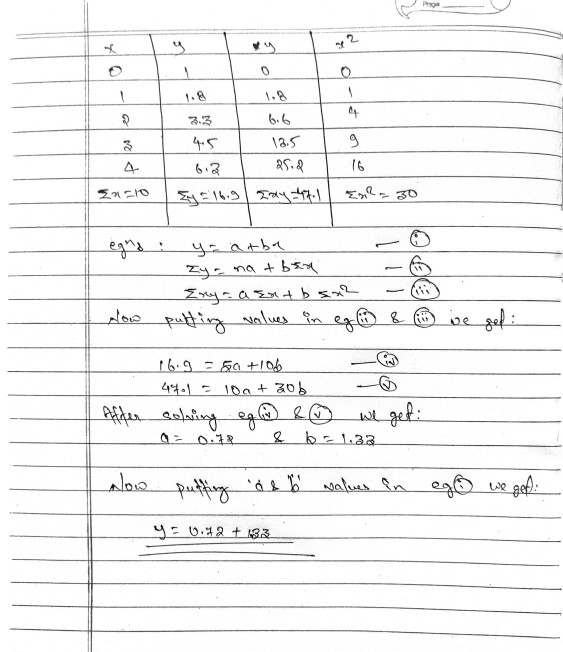 Page
x y xy x²
0 1 0 0
1 1.8 1.8 1
2 3.3 6.6 4
3 4.5 13.5 9
4 6.3 25.2 16
Σx=10 Σy=16.9 Σxy=47.1 Σx²=30
eqⁿs : y = a + bx — (i)
Σy = na + bΣx — (ii)
Σxy = aΣx + bΣx² — (iii)
Now putting values in eq (ii) & (iii) we get :
16.9 = 5a + 10b — (iv)
47.1 = 10a + 30b — (v)
After solving eq (iv) & (v) we get :
a = 0.72 & b = 1.33
Now putting 'a & b' values in eq (i) we get :
y = 0.72 + 1.33